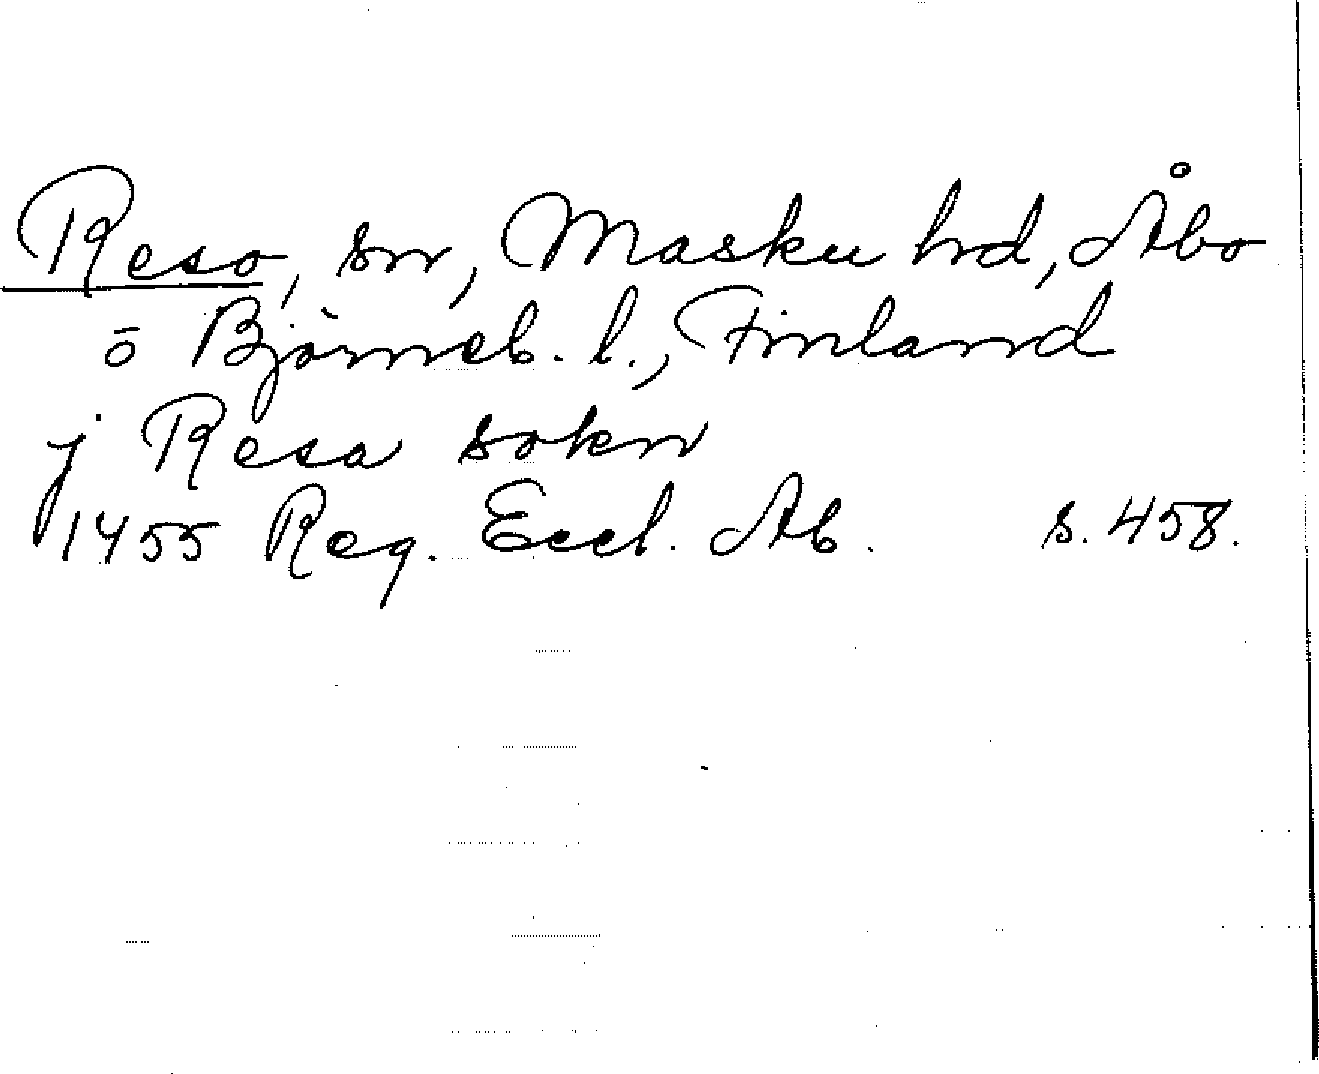 Reso, sn, Masku hd, Åbo
ō Björneb. l., Finland
j Resa sokn
1455 Reg. Eccl. Ab. s. 458.